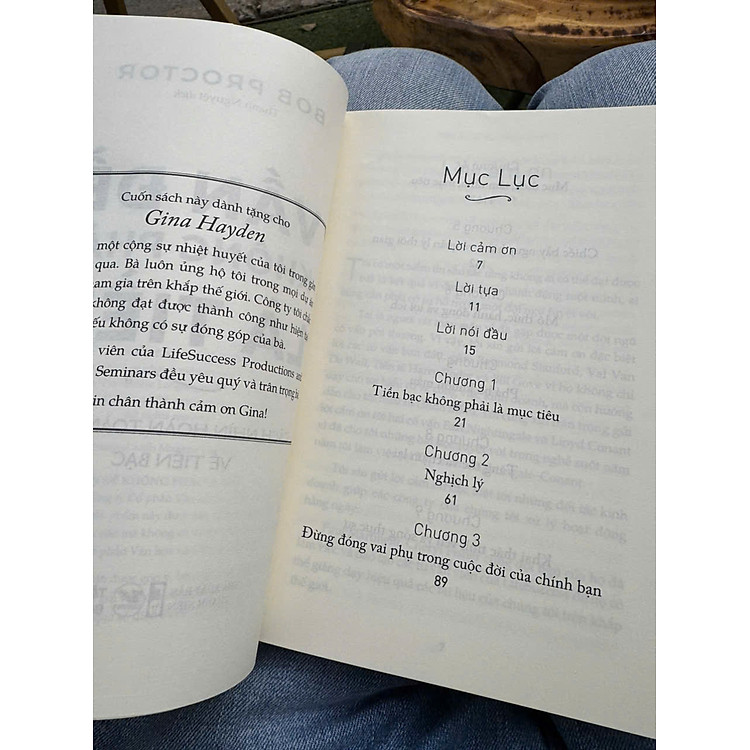 Cuốn sách này dành tặng cho
Gina Hayden
một cộng sự nhiệt huyết của tôi trong
qua. Bà luôn ủng hộ tôi trong mọi dự
am gia trên khắp thế giới. Công ty tôi
không đạt được thành công như hiện
ếu không có sự đóng góp của bà.
viên của LifeSuccess Productions
Seminars đều yêu quý và trân trọng
in chân thành cảm ơn Gina!
Mục Lục
Lời cảm ơn
7
Lời tựa
11
Lời nói đầu
15
Chương 1
Tiền bạc không phải là mục tiêu
21
Chương 2
Nghịch lý
61
Chương 3
Đừng đóng vai phụ trong cuộc đời của chính bạn
89